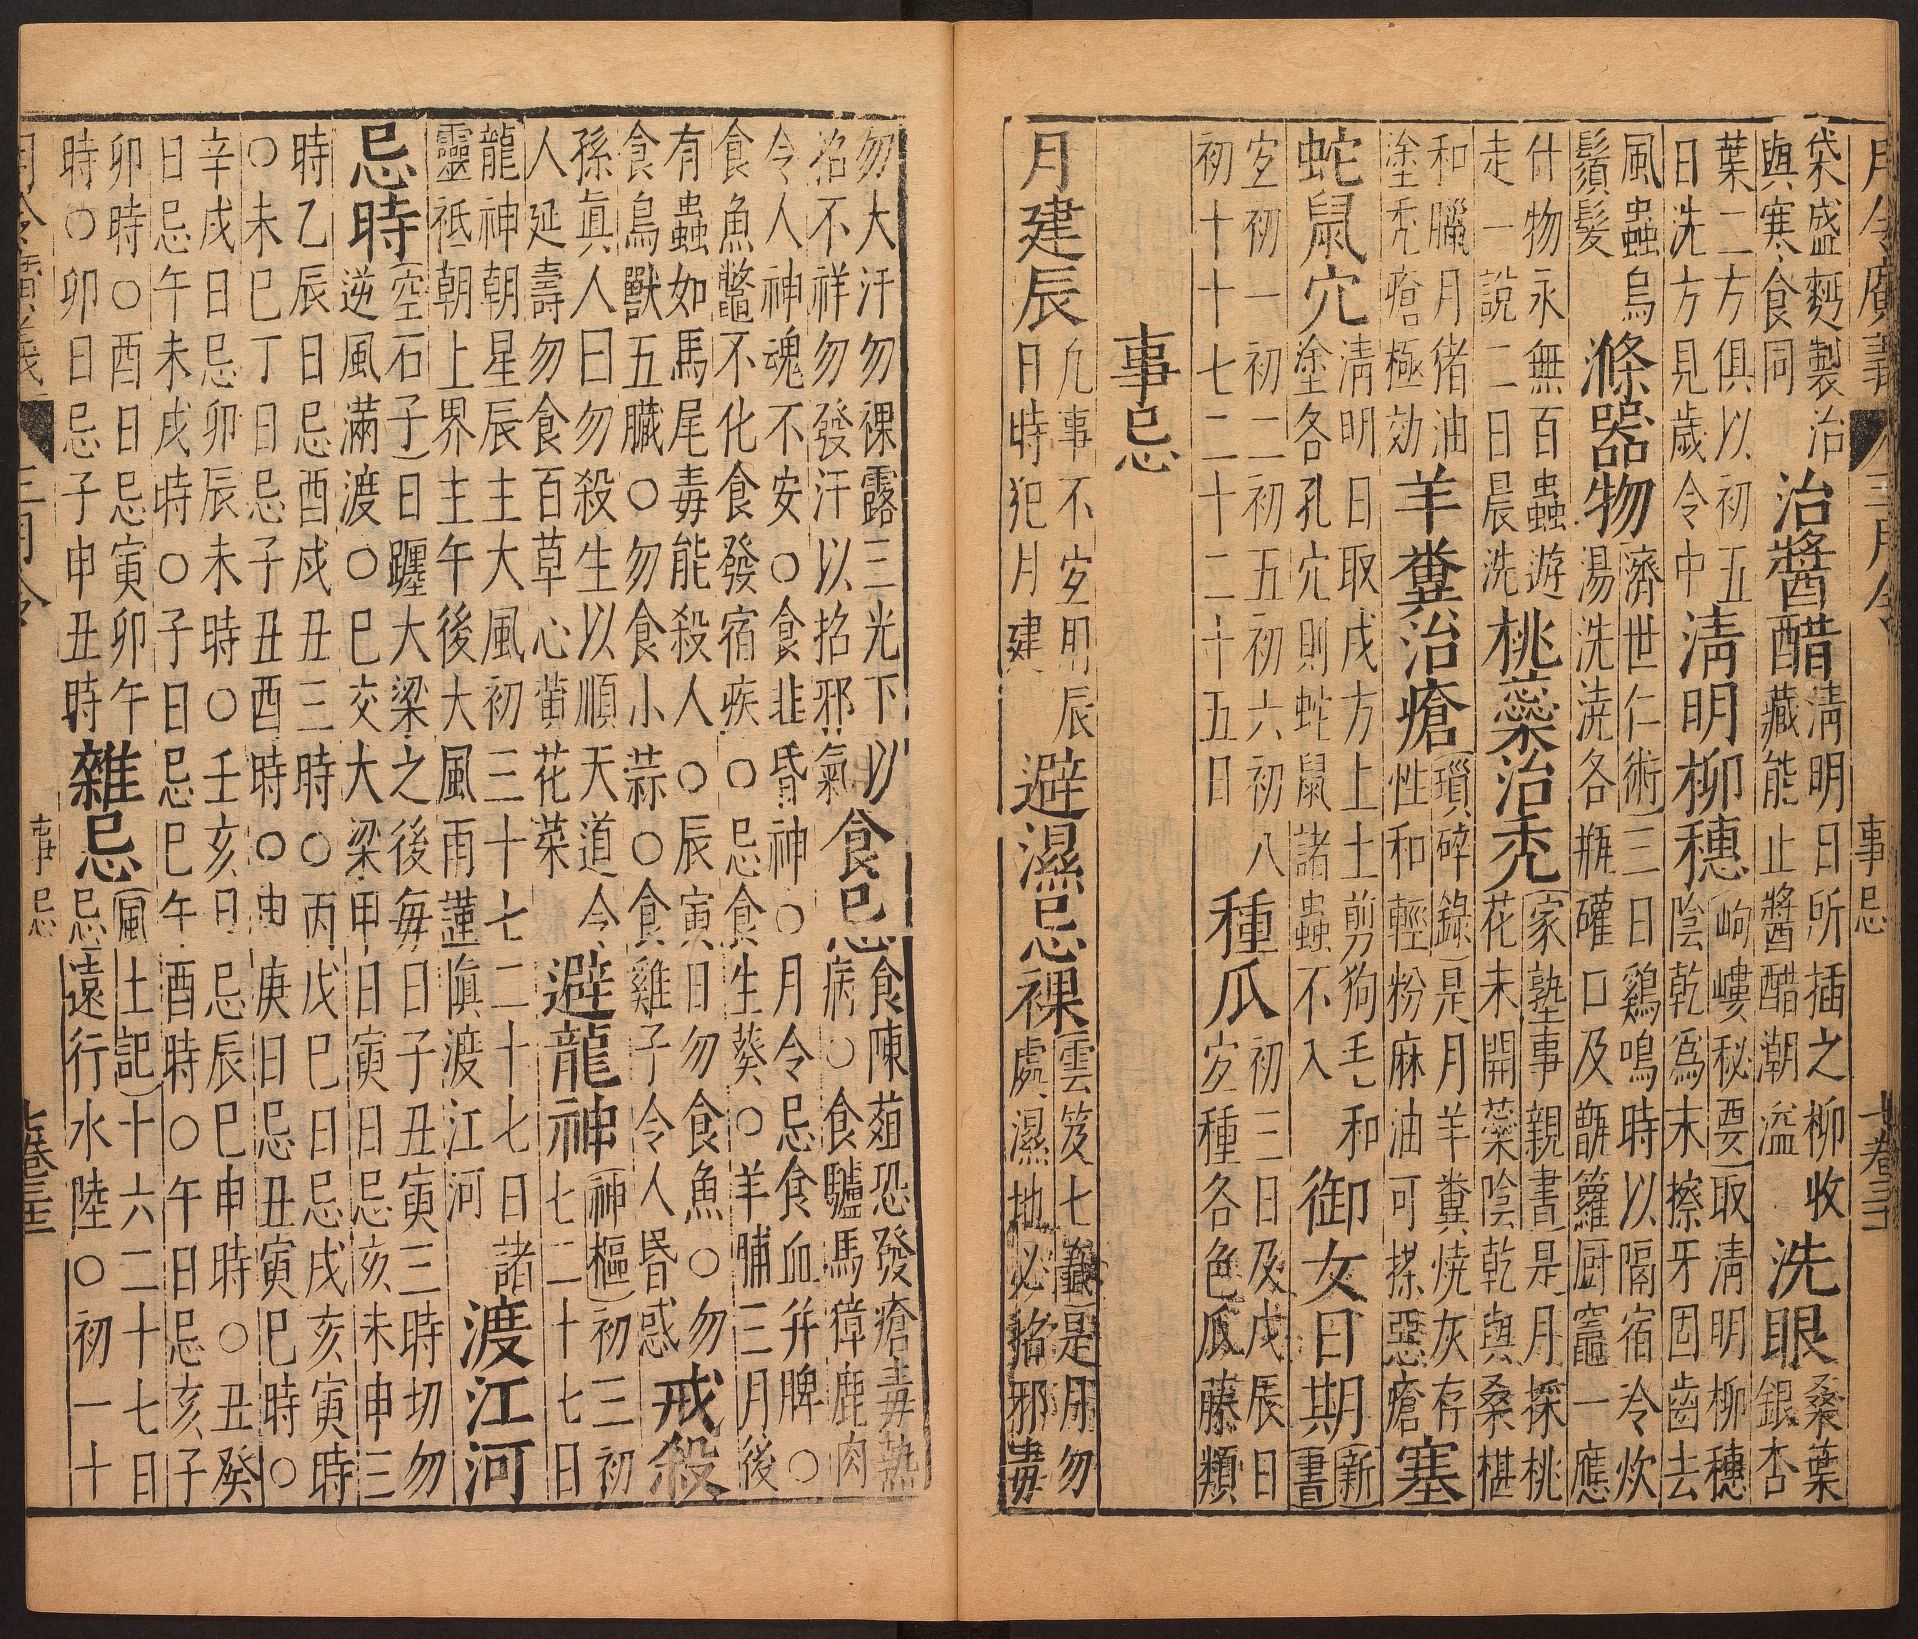 月令廣義 三月令 事忌
袋盛麪製治
與寒食同
治醬醋
淸明日所插之柳收
藏能止醬醋潮溢
洗眼
桑葉
銀杏
葉二方俱以初五
日洗方見歲令中
淸明柳穗
(岣嶁秘要)取淸明柳穗
陰乾爲末擦牙固齒去
風蟲烏
鬚髮
滌器物
(濟世仁術)三日鷄鳴時以隔宿冷炊
湯洗澆各瓶礶口及甑籮厨竈一應
什物永無百蟲遊
走一說二日晨洗
桃蘂治禿
(家塾事親書)是月採桃
花未開蘂陰乾與桑椹
和臘月猪油
塗禿瘡極効
羊糞治瘡
(瑣碎錄)是月羊糞燒灰存
性和輕粉麻油可搽惡瘡
塞
蛇鼠穴
淸明日取戌方上土剪狗毛和
塗各孔穴則蛇鼠諸蟲不入
御女日期
(新
書)
宜初一初二初五初六初八
初十十七二十二十五日
種瓜
初三日及戊辰日
宜種各色瓜藤類
事忌
月建辰
凡事不宜用辰
日時犯月建
避濕忌裸
雲笈七籤)是月勿
處濕地必招邪毒
勿大汗勿裸露三光下以
招不祥勿發汗以招邪氣
食忌
食陳菹恐發瘡毒熱
病○食驢馬獐鹿肉
令人神魂不安○食韭昏神○月令忌食血并脾○
食魚鱉不化食發宿疾○忌食生葵○羊脯三月後
有蟲如馬尾毒能殺人○辰寅日勿食魚○勿
食鳥獸五臟○勿食小蒜○食雞子令人昏惑
戒殺
孫眞人曰勿殺生以順天道今
人延壽勿食百草心黃花菜
避龍神
(神樞)初三初
七二十七日
龍神朝星辰主大風初三十七二十七日諸
靈祇朝上界主午後大風雨謹愼渡江河
渡江河
忌時
(空石子)日躔大梁之後每日子丑寅三時切勿
逆風滿渡○巳交大梁甲日寅日忌亥未申三
時乙辰日忌酉戌丑三時○丙戊巳日忌戌亥寅時
○未巳丁日忌子丑酉時○由庚日忌丑寅巳時○
辛戌日忌卯辰未時○壬亥日忌辰巳申時○丑癸
日忌午未戌時○子日忌巳午酉時○午日忌亥子
卯時○酉日忌寅卯午
時○卯日忌子申丑時
雜忌
(風土記)十六二十七日
忌遠行水陸○初一十
月令廣義 三月令 事忌